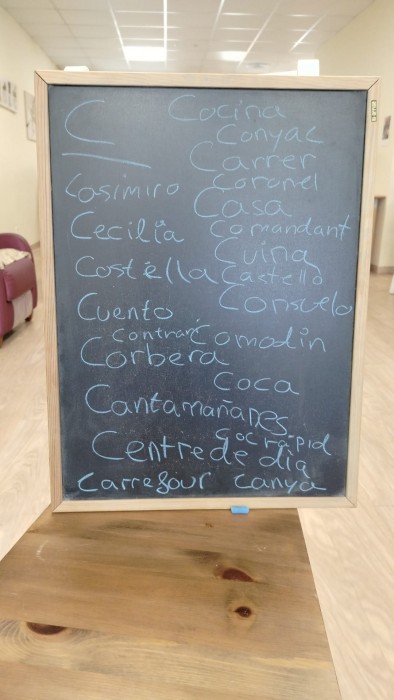 C
Cocina
Conyac
Carrer
Casimiro Coronel
Casa
Cecilia Comandant
Cuina
Costella Castelló
Cuento Consuelo
Contrari Comodín
Corbera
Coca
Cantamañanes
Coc ràpid
Centre de dia
Carrefour Canya